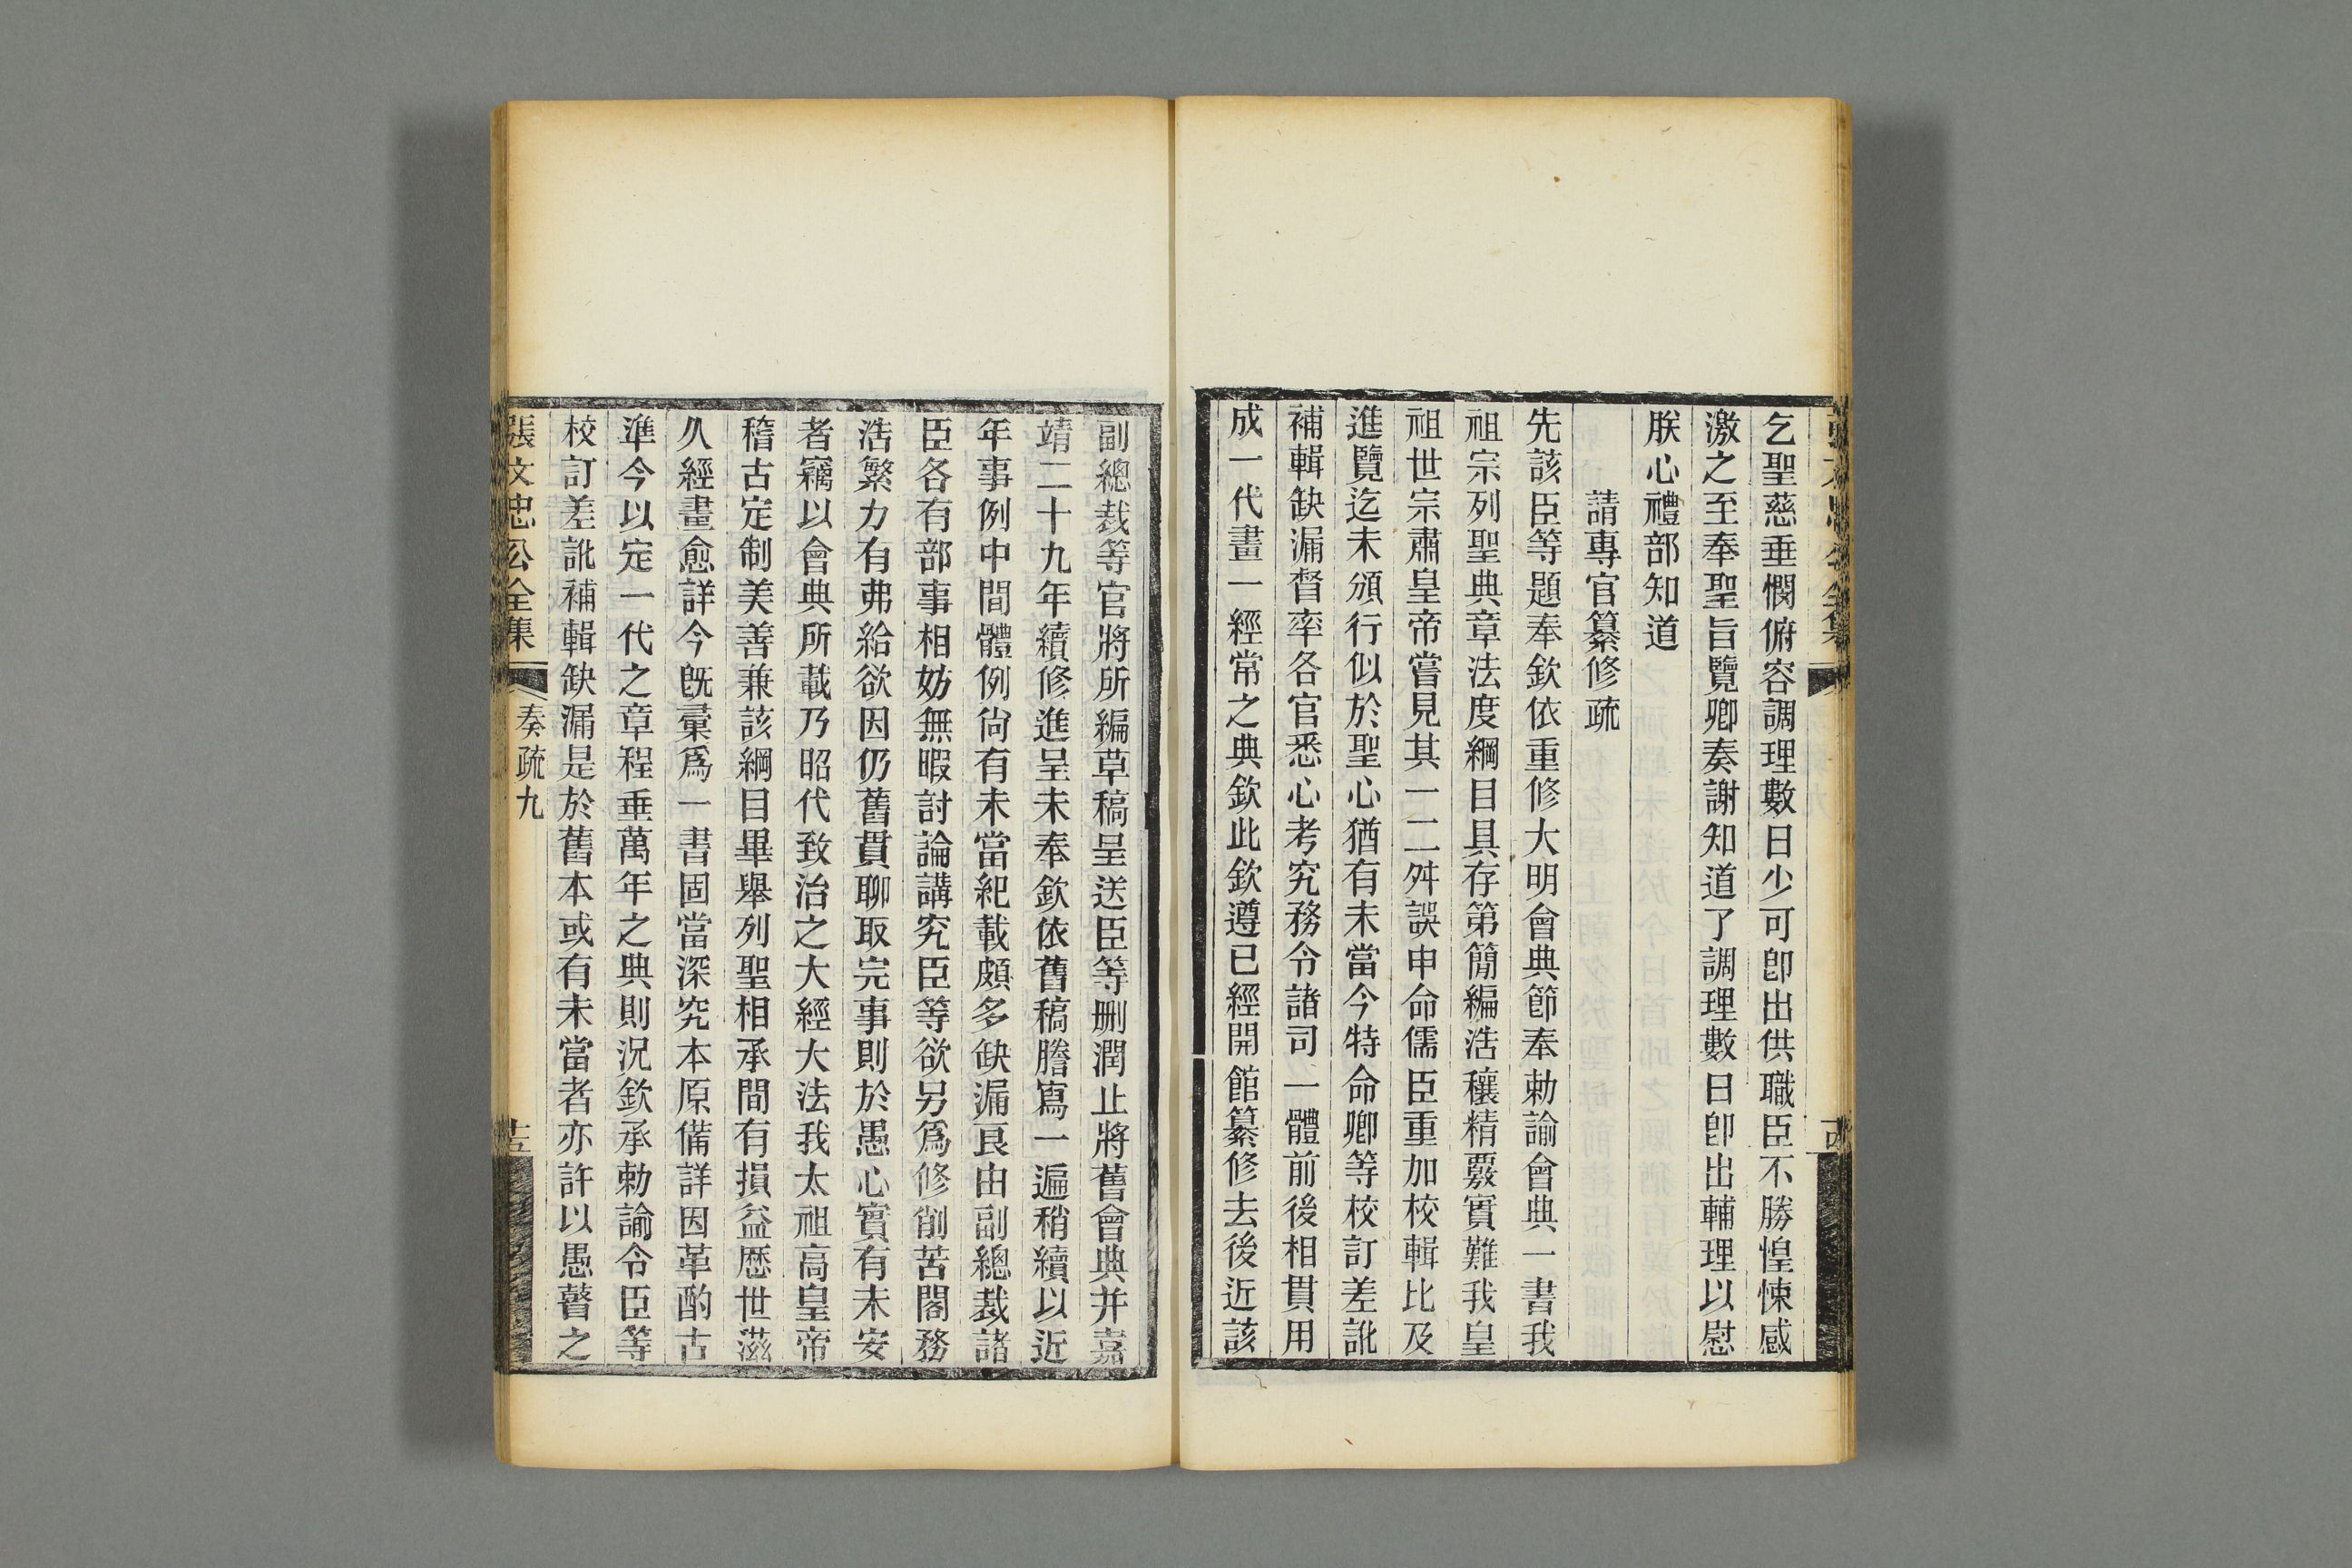 乞聖慈垂憫俯容調理數日少可卽出供職臣不勝惶悚感
激之至奉聖旨覽卿奏謝知道了調理數日卽出輔理以慰
朕心禮部知道
請專官纂修疏
先該臣等題奉欽依重修大明會典節奉勅諭會典一書我
祖宗列聖典章法度綱目具存第簡編浩穰精覈實難我皇
祖世宗肅皇帝嘗見其一二舛誤申命儒臣重加校輯比及
進覽迄未頒行似於聖心猶有未當今特命卿等校訂差訛
補輯缺漏督率各官悉心考究務令諸司一體前後相貫用
成一代畫一經常之典欽此欽遵已經開館纂修去後近該
副總裁等官將所編草稿呈送臣等删潤止將舊會典并嘉
靖二十九年續修進呈未奉欽依舊稿謄寫一遍稍續以近
年事例中間體例尙有未當紀載頗多缺漏良由副總裁諸
臣各有部事相妨無暇討論講究臣等欲另爲修削苦閣務
浩繁力有弗給欲因仍舊貫聊取完事則於愚心實有未安
者竊以會典所載乃昭代致治之大經大法我太祖高皇帝
稽古定制美善兼該綱目畢舉列聖相承間有損益歷世滋
久經畫愈詳今旣彙爲一書固當深究本原備詳因革酌古
準今以定一代之章程垂萬年之典則況欽承勅諭令臣等
校訂差訛補輯缺漏是於舊本或有未當者亦許以愚瞽之
張文忠公全集
奏疏九